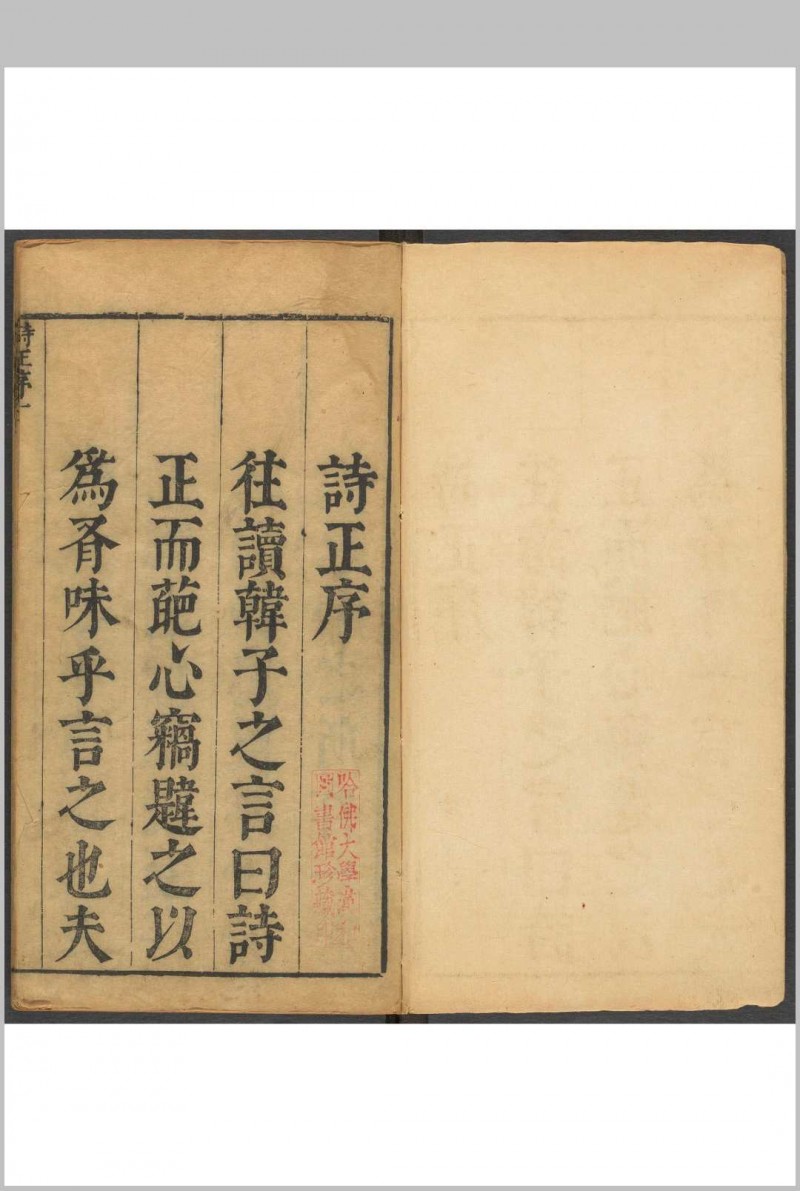 詩正序
往讀韓子之言曰詩
正而葩心竊韙之以
爲胥味乎言之也夫
詩正序一
哈佛大學
圖書館珍藏印